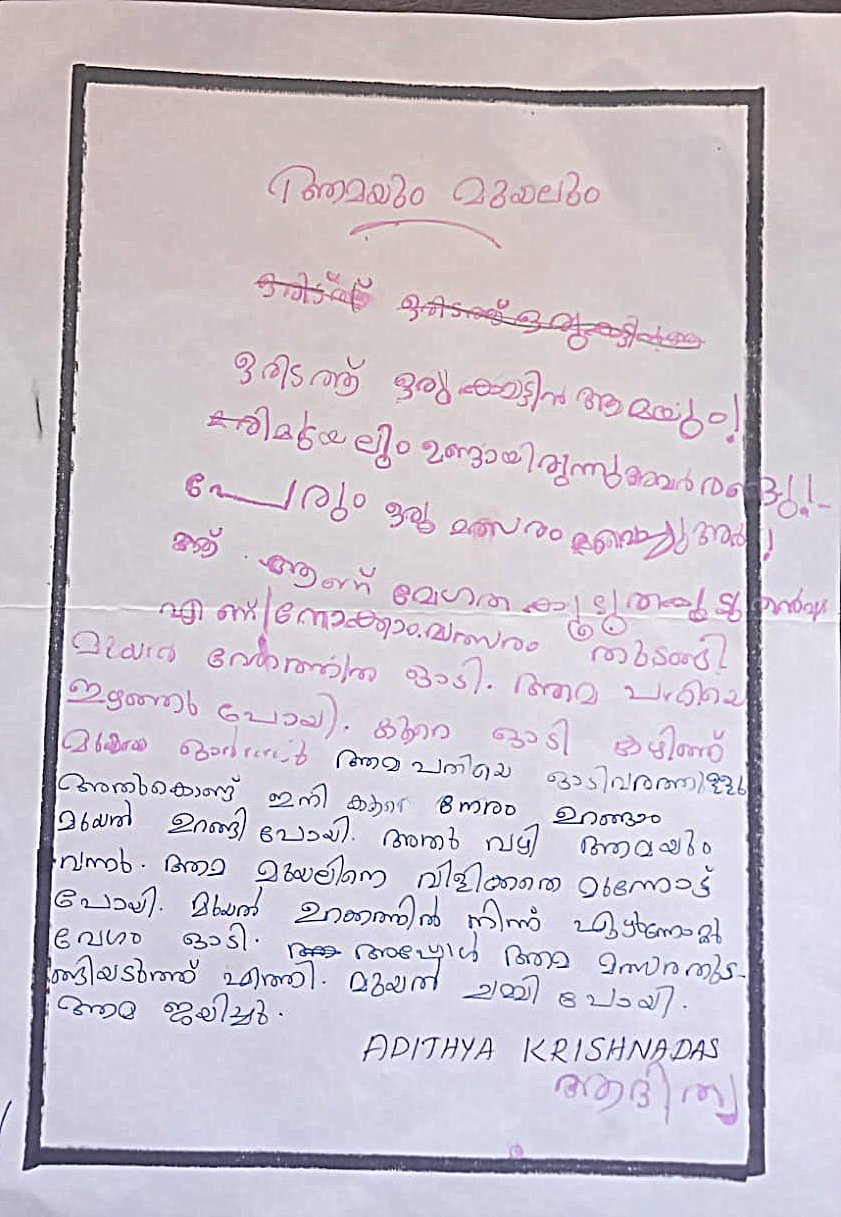 ആമയും മുയലും
ഒരിടത്ത് ഒരിടത്ത് ഒരു
ഒരിടത്ത് ഒരു കാട്ടിൽ ആമയും
മുയലും ഉണ്ടായിരുന്നു അവർ രണ്ടു
പേരും ഒരു മത്സരം വെച്ചു ആർ
ക്ക് ആണ് വേഗത കൂടുതൽ
എന്ന് നോക്കാം. മത്സരം തുടങ്ങി
മുയൽ വേഗത്തിൽ ഓടി. ആമ പതിയെ
ഇഴഞ്ഞു പോയി. കുറെ ഓടി കഴിഞ്ഞ്
മുയൽ ഓർത്തു ആമ പതിയെ ഓടിവരത്തൊള്ളു
അതുകൊണ്ട് ഇനി കുറെ നേരം ഉറങ്ങാം
മുയൽ ഉറങ്ങി പോയി. അതു വഴി ആമയും
വന്നു. ആമ മുയലിനെ വിളിക്കതെ മുന്നോട്ട്
പോയി. മുയൽ ഉറക്കത്തിൽ നിന്ന് എഴുന്നേറ്റു
വേഗം ഓടി. അപ്പോൾ ആമ തുട-
ങ്ങിയടുത്ത് എത്തി. മുയൽ ചമ്മി പോയി.
ആമ ജയിച്ചു.
ADITHYA KRISHNADAS
ആദിത്യ